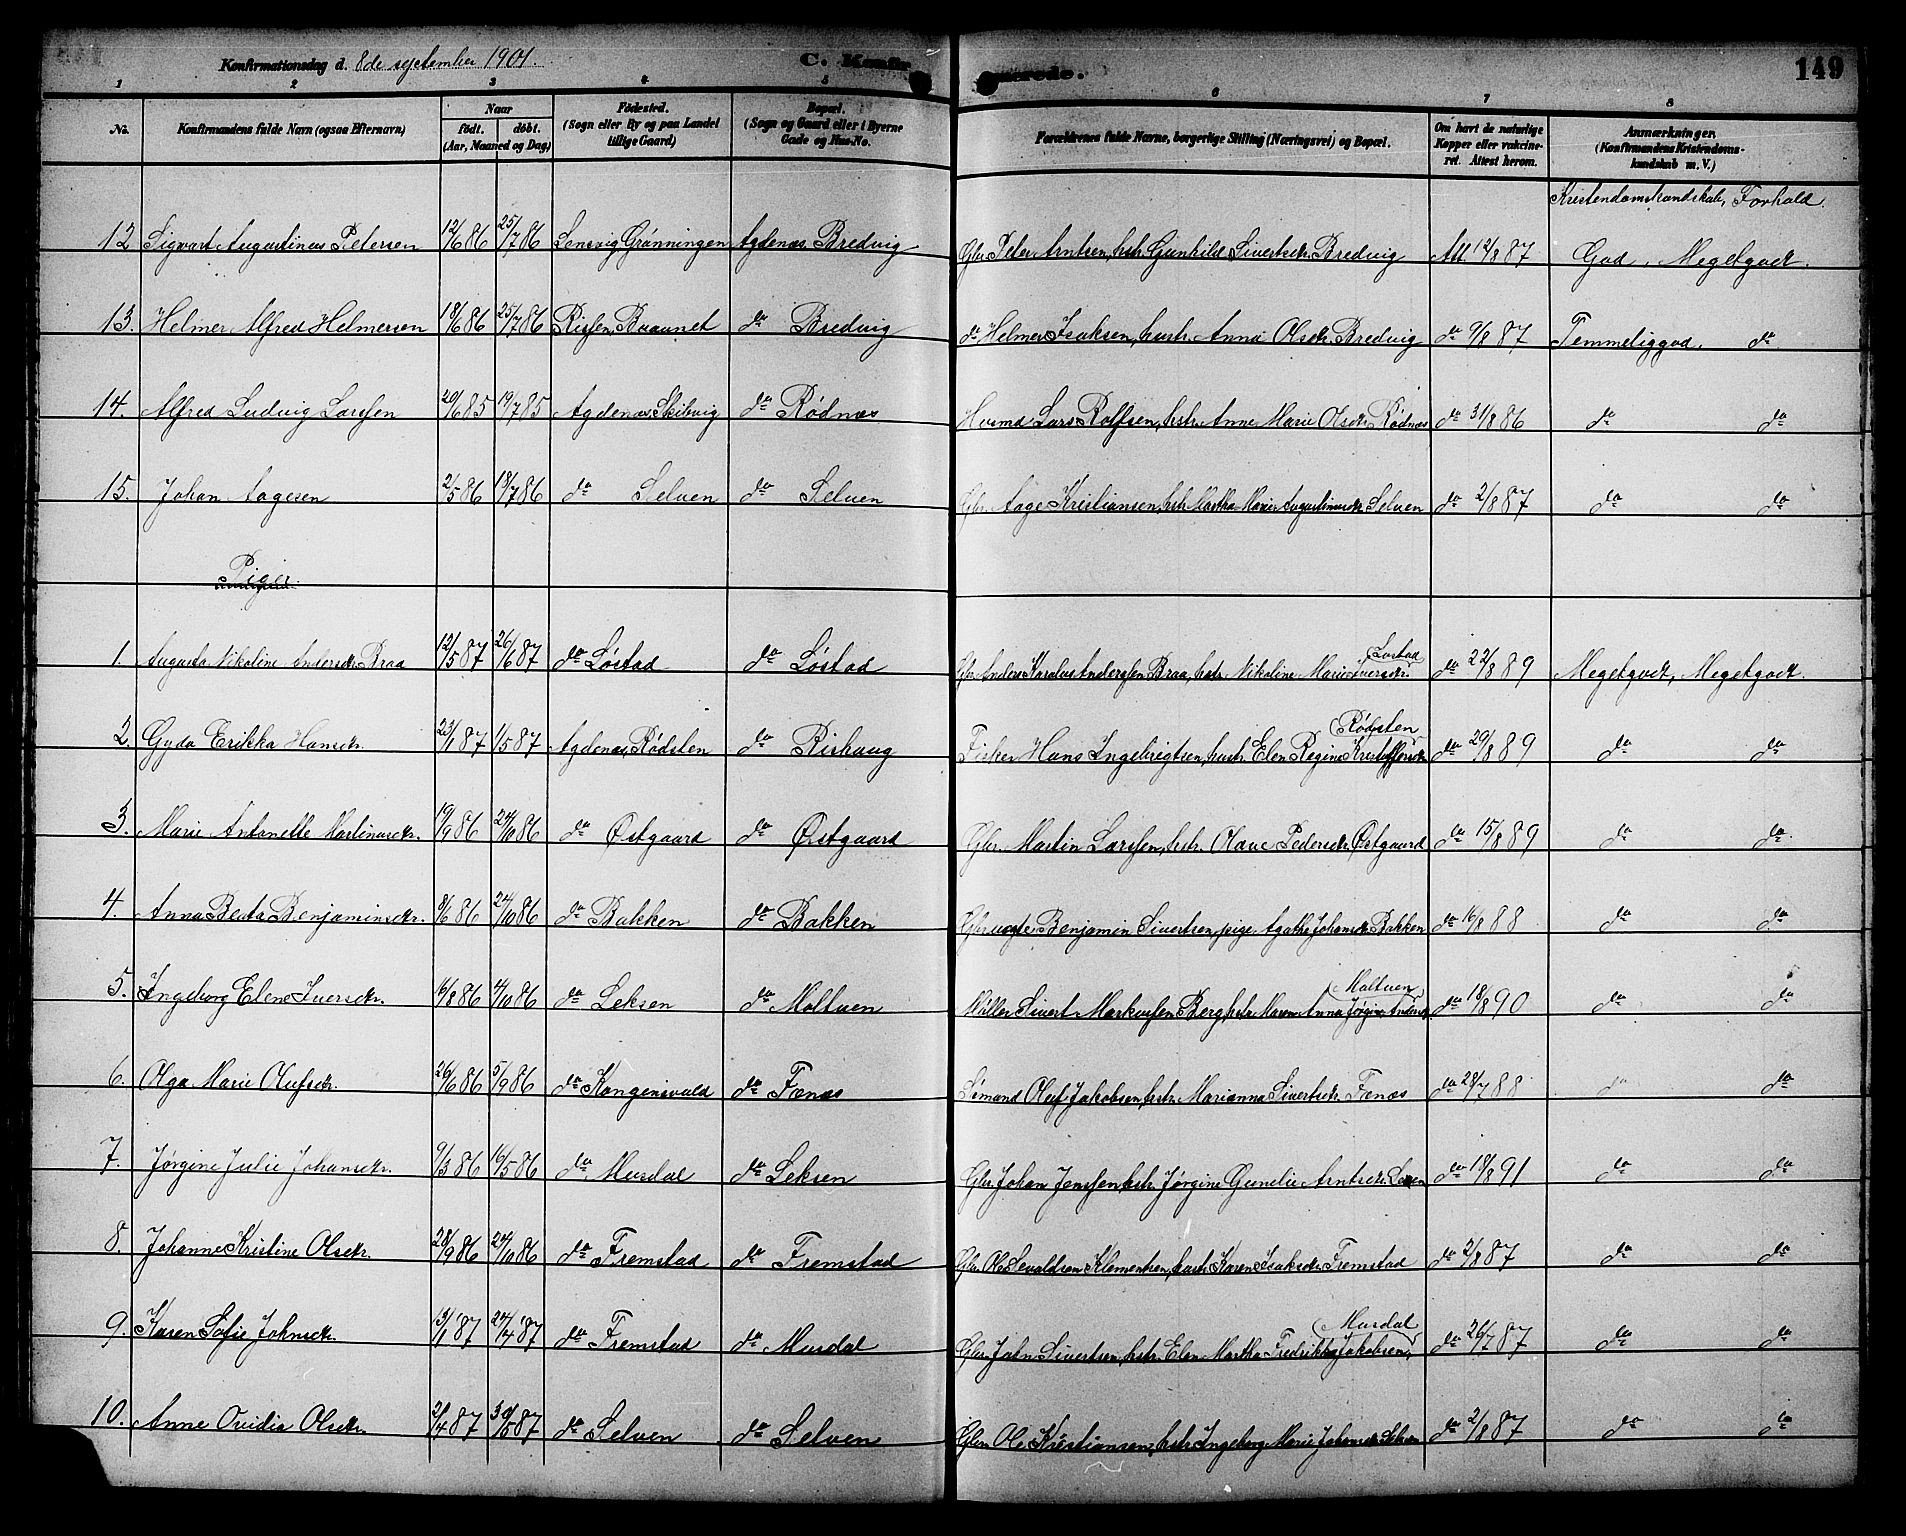 Konfirmationsdag d. 8de september 1901.
C. Konfir
merede.
149
1 2 3 4 5 6 7 8
No. Konfirmandens fulde Navn (ogsaa Efternavn)
Naar
födt. döbt.
(Aar, Maaned og Dag)
Födested.
(Sogn eller By og paa Landet
tillige Gaard)
Bopæl.
(Sogn og Gaard eller i Byerne
Gade og Hus-No.
Forældrenes fulde Navne, borgerlige Stilling (Næringsvei) og Bopæl.
Om havt de naturlige
Kopper eller vakcine-
ret. Attest herom.
Anmærkninger.
(Konfirmandens Kristendoms-
kundskab m. V.)
Kristendomskundskab, Forhold.
12 Sigvart Augustinus Petersen 12/6 86 25/7 86 Lensvig Grønningen Agdenæs Bredvig Gbr. Peter Arntsen, hstr. Gunhild Sivertsdtr. Bredvig Att. 12/8 87 God, Megetgodt.
13. Helmer Alfred Helmersen 18/6 86 25/7 86 Rissen, Baaunet do Bredvig do Helmer Isaksen, hustr. Anna Olsdtr. Bredvig do 9/8 87 Temmeliggod. do
14. Alfred Ludvig Larssen 20/6 85 19/7 85 Agdenæs Skibvig do Rødnæs Husmd. Lars Rolfsen, hstr. Anne Marie Olsdtr. Rødnæs do 31/8 86 do do
15. Johan Aagesen 2/5 86 18/7 86 do Selven do Selven Gbr. Aage Kristiansen, hstr. Martha Marie Augustinusdtr. Selven do 2/8 87 do do
Piger
1. Augusta Nikoline Andersdtr. Braa 12/5 87 26/6 87 do Løstad do Løstad Gbr. Anders Karolus Anderssen Braa, hstr. Nikoline Marie Iversdtr. Løstad do 22/8 89 Megetgodt, Megetgodt.
2. Gyda Erikka Hansdtr. 23/1 87 1/5 87 Agdenæs Rødsten do Rishaug Fisker Hans Ingebrigtsen, hustr. Elen Regine Kristoffersdtr. Rødsten do 29/8 89 do do
3. Marie Antonette Martinusdtr. 19/9 86 24/10 86 do Østgaard do Østgaard Gbr. Martin Larssen, hstr. Olave Pedersdtr. Østgaard do 15/8 89 do do.
4. Anna Berta Benjaminsdtr. 8/6 86 24/10 86 do Bakken do Bakken Benjamin Sivertsen, pige Agathe Johansdtr. Bakken do 16/8 88 do do
5. Ingeborg Elene Iversdtr. 16/8 86 4/10 86 do Leksen do Moltuen Møller Sivert Markussen Berg hstr. Maren Anna Jørgine Andersdtr. Moltuen do 18/8 90 do do
6. Olga Marie Olufsdtr. 26/6 86 5/9 86 do Kongensvold do Fænæs Sømand Oluf Jakobsen, hstr. Marianna Sivertsdtr. Fænæs do 28/7 88 do do
7. Jørgine Julie Johansdtr. 9/3 86 16/5 86 do Murdal do Leksen Gbr. Johan Jenssen, hstr. Jørgine Gunelie Arntsdtr. do 18/8 91 do do
8. Johanne Kristine Olsdtr. 28/9 86 24/10 86 do Fremstad do Fremstad Gbr. Ole Sevaldsen Klementsen, hustr. Karen Isaksdtr. Fremstad do 2/8 87 do do
9. Karen Sofie Johnsdtr. 13/1 87 24/4 87 do Fremstad do Murdal Gbr. John Sivertsen, hstr. Elen Martha Fredrikke Jakobsen, Murdal do 26/7 87 do do
10. Anne Ovidia Olsdtr. 2/4 87 30/5 87 do Selven do Selven Gbr. Ole Kristiansen, hstr. Ingeborg Marie Johansdtr. Selven do 2/8 87 do do